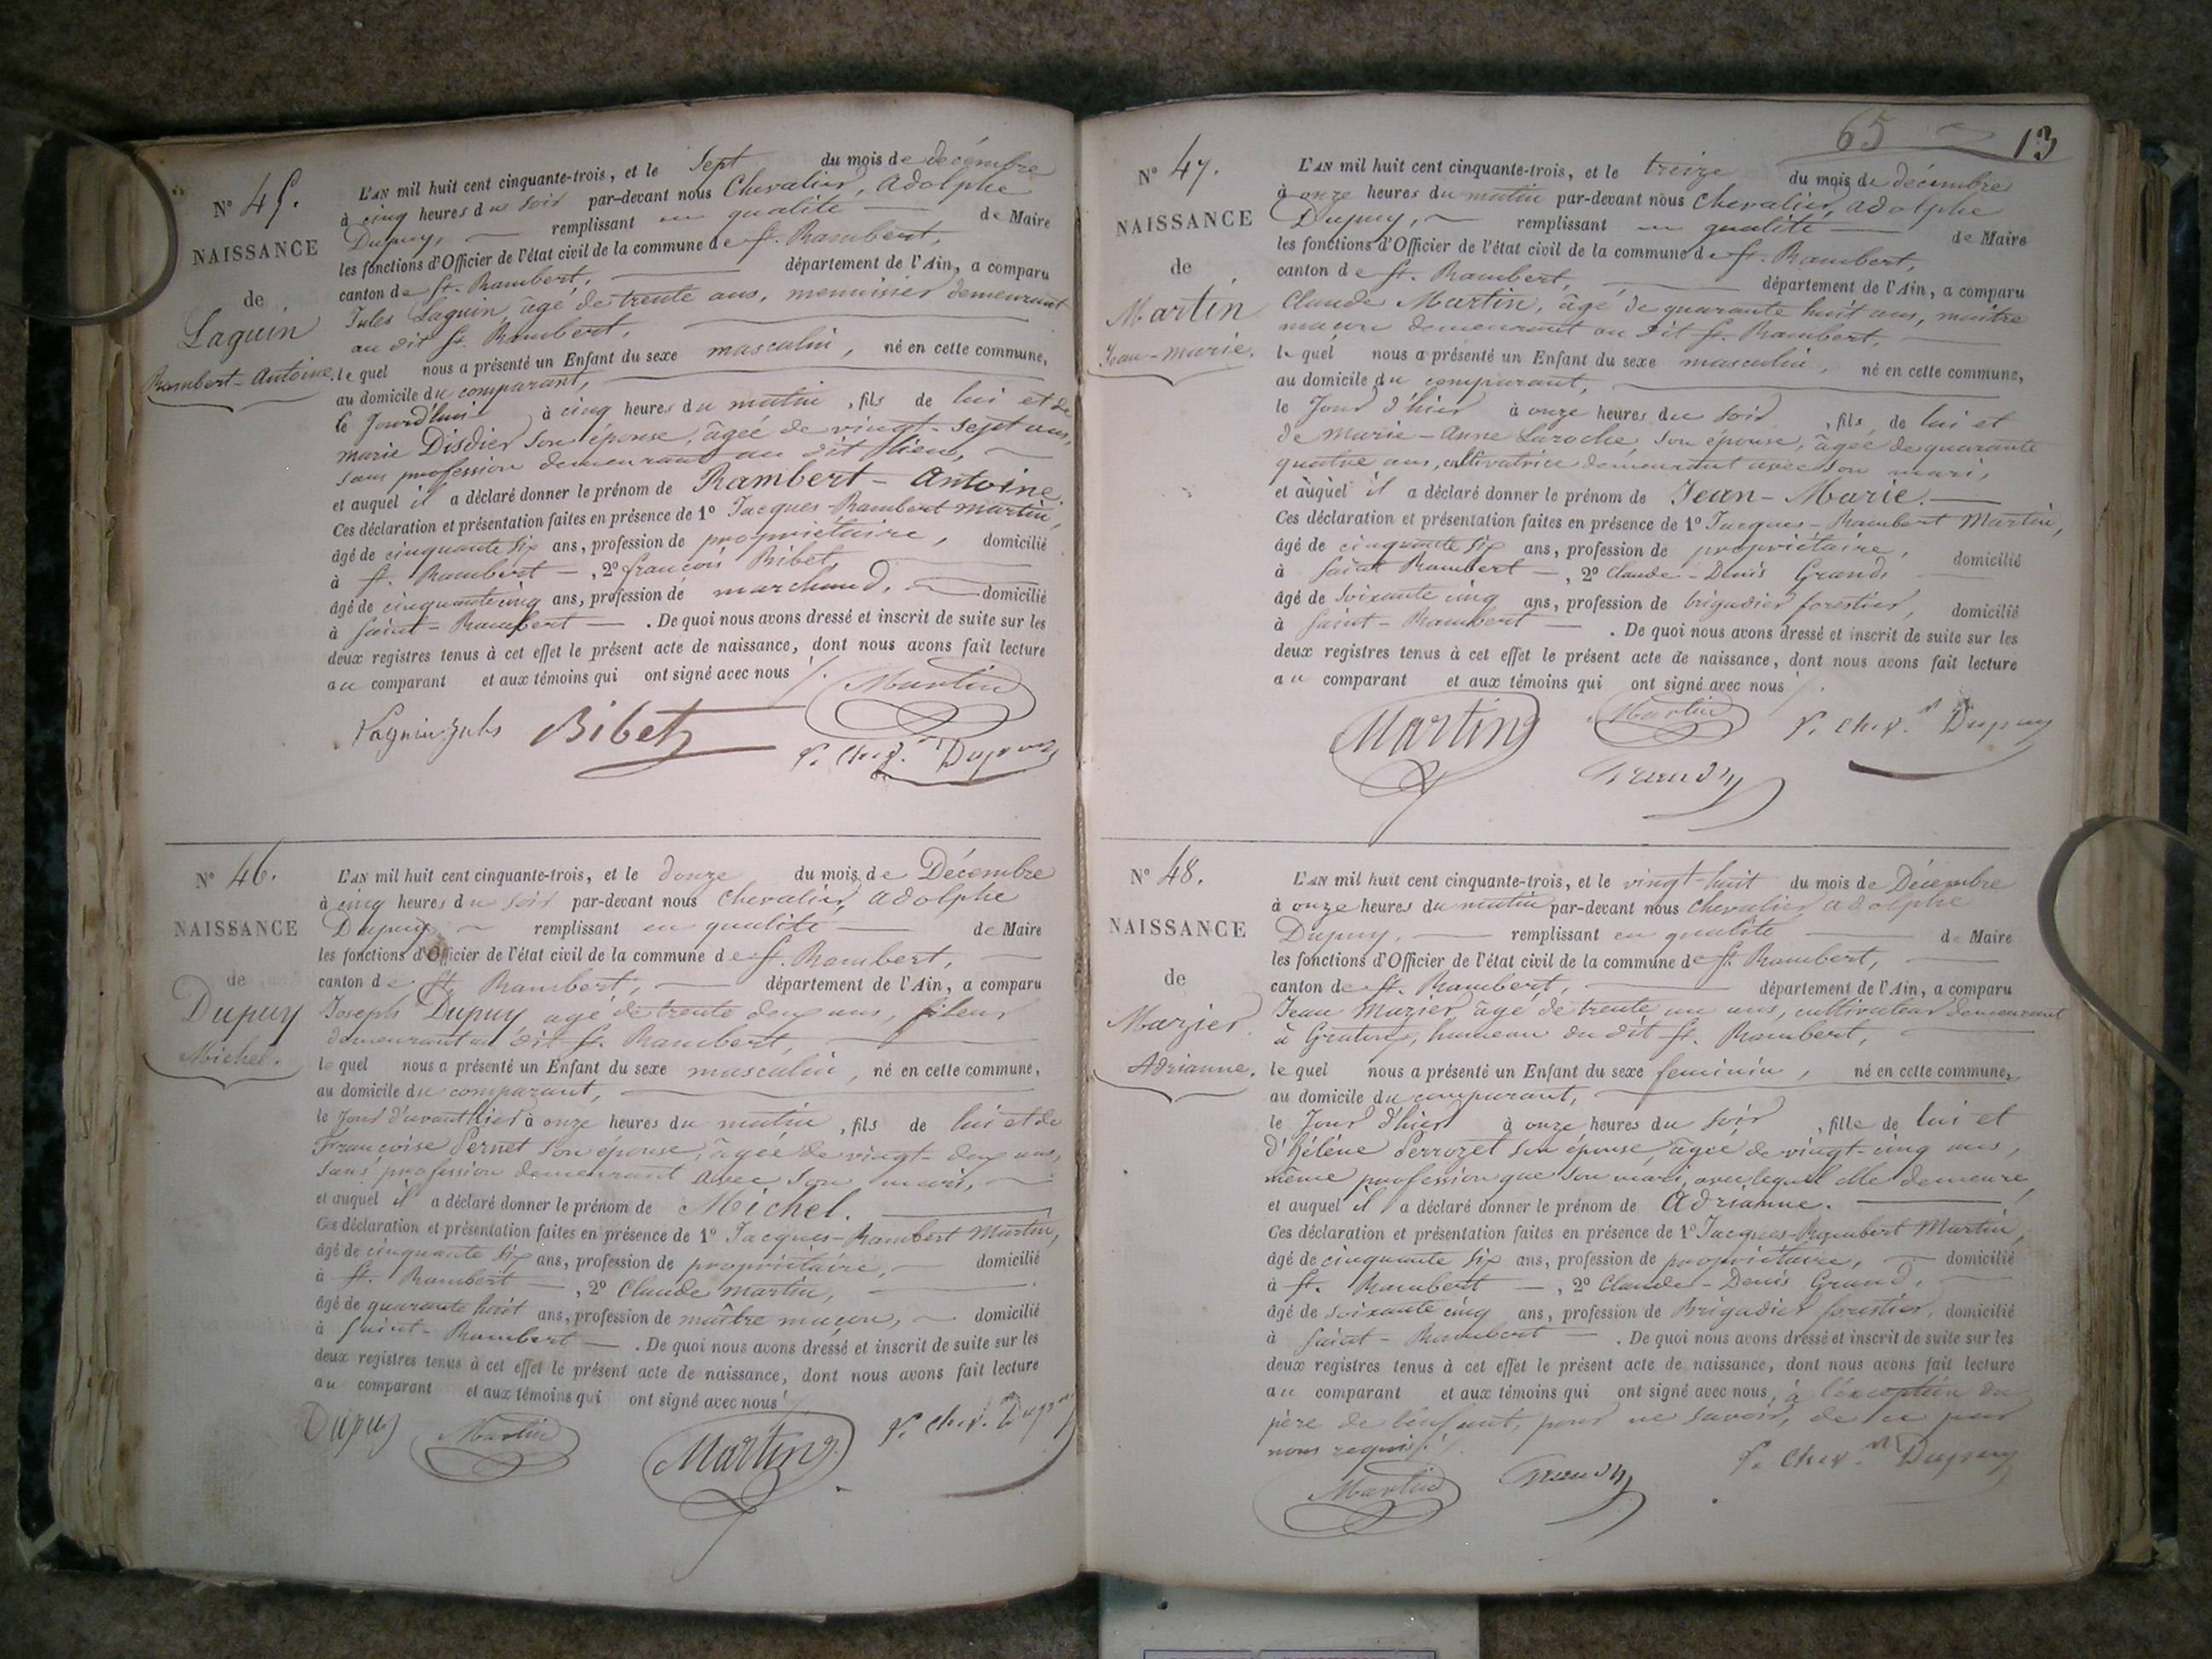 N° 45.
NAISSANCE
de
Laguin
Rambert-Antoine.
L'AN mil huit cent cinquante-trois, et le sept du mois de décembre
à cinq heures du soir par-devant nous Chevalier, Adolphe
Dupuy, remplissant en qualité de Maire
les fonctions d'Officier de l'état civil de la commune de St. Rambert,
canton de St. Rambert, département de l'Ain, a comparu
Jules Laguin, âgé de trente ans, menuisier demeurant
au dit St. Rambert,
le quel nous a présenté un Enfant du sexe masculin, né en cette commune,
au domicile du comparant,
le Jourd'hui à cinq heures du matin, fils de lui et de
marie Disdier son épouse, âgée de vingt-sept ans,
sans profession demeurant au dit lieu,
et auquel il a déclaré donner le prénom de Rambert-Antoine.
Ces déclaration et présentation faites en présence de 1° Jacques-Rambert Martin,
âgé de cinquante six ans, profession de propriétaire, domicilié
à St. Rambert, 2° françois Bibet,
âgé de cinquante cinq ans, profession de marchand, domicilié
à Saint-Rambert. De quoi nous avons dressé et inscrit de suite sur les
deux registres tenus à cet effet le présent acte de naissance, dont nous avons fait lecture
au comparant et aux témoins qui ont signé avec nous
Martin
Laguin Jules Bibet
Dupuy
N° 46.
NAISSANCE
de
Dupuy
Michel.
L'AN mil huit cent cinquante-trois, et le douze du mois de Décembre
à cinq heures du soir par-devant nous Chevalier, Adolphe
Dupuy remplissant en qualité de Maire
les fonctions d'Officier de l'état civil de la commune de St. Rambert,
canton de St. Rambert, département de l'Ain, a comparu
Joseph Dupuy agé de trente deux ans, fileur
demeurant au dit St. Rambert,
le quel nous a présenté un Enfant du sexe masculin, né en cette commune,
au domicile du comparant,
le Jour d'avant hier à onze heures du matin, fils de lui et de
Françoise Pernet son épouse, âgée de vingt-deux ans,
sans profession demeurant avec son mari,
et auquel il a déclaré donner le prénom de Michel.
Ces déclaration et présentation faites en présence de 1° Jacques-Rambert Martin,
âgé de cinquante six ans, profession de propriétaire, domicilié
à St. Rambert, 2° Claude Martin,
âgé de quarante huit ans, profession de maître maçon, domicilié
à Saint-Rambert. De quoi nous avons dressé et inscrit de suite sur les
deux registres tenus à cet effet le présent acte de naissance, dont nous avons fait lecture
au comparant et aux témoins qui ont signé avec nous
Dupuy Martin Martin Dupuy
65
13
N° 47.
NAISSANCE
de
Martin
Jean-Marie.
L'AN mil huit cent cinquante-trois, et le treize du mois de décembre
à onze heures du matin par-devant nous Chevalier, Adolphe
Dupuy, remplissant en qualité de Maire
les fonctions d'Officier de l'état civil de la commune de St. Rambert,
canton de St. Rambert, département de l'Ain, a comparu
Claude Martin, âgé de quarante huit ans, maître
maçon demeurant au dit St. Rambert,
le quel nous a présenté un Enfant du sexe masculin, né en cette commune,
au domicile du comparant,
le Jour d'hier à onze heures du soir, fils de lui et
de Marie-Anne Laroche, son épouse, âgée de quarante
quatre ans, cultivatrice demeurant avec son mari,
et auquel il a déclaré donner le prénom de Jean-Marie.
Ces déclaration et présentation faites en présence de 1° Jacques-Rambert Martin,
âgé de cinquante six ans, profession de propriétaire, domicilié
à Saint Rambert, 2° Claude-Denis Grand,
âgé de soixante cinq ans, profession de brigadier forestier, domicilié
à Saint-Rambert. De quoi nous avons dressé et inscrit de suite sur les
deux registres tenus à cet effet le présent acte de naissance, dont nous avons fait lecture
au comparant et aux témoins qui ont signé avec nous
Martin Martin Dupuy
Grand
N° 48.
NAISSANCE
de
Mazier
Adrianne.
L'AN mil huit cent cinquante-trois, et le vingt-huit du mois de Décembre
à onze heures du matin par-devant nous Chevalier Adolphe
Dupuy, remplissant en qualité de Maire
les fonctions d'Officier de l'état civil de la commune de St. Rambert,
canton de St. Rambert, département de l'Ain, a comparu
Jean Mazier âgé de trente un ans, cultivateur demeurant
à hameau du dit St. Rambert,
le quel nous a présenté un Enfant du sexe feminin, né en cette commune,
au domicile du comparant,
le Jour d'hier à onze heures du soir, fille de lui et
d'Hélène Perrozet son épouse, âgée de vingt-cinq ans,
même profession que son mari, avec lequel elle demeure,
et auquel il a déclaré donner le prénom de Adrianne.
Ces déclaration et présentation faites en présence de 1° Jacques-Rambert Martin,
âgé de cinquante six ans, profession de propriétaire, domicilié
à St. Rambert, 2° Claude-Denis Grand,
âgé de soixante cinq ans, profession de Brigadier forestier, domicilié
à Saint-Rambert. De quoi nous avons dressé et inscrit de suite sur les
deux registres tenus à cet effet le présent acte de naissance, dont nous avons fait lecture
au comparant et aux témoins qui ont signé avec nous, à l'exception du
père de l'enfant, pour ne savoir, de ce par
nous requis.
Martin Grand Dupuy